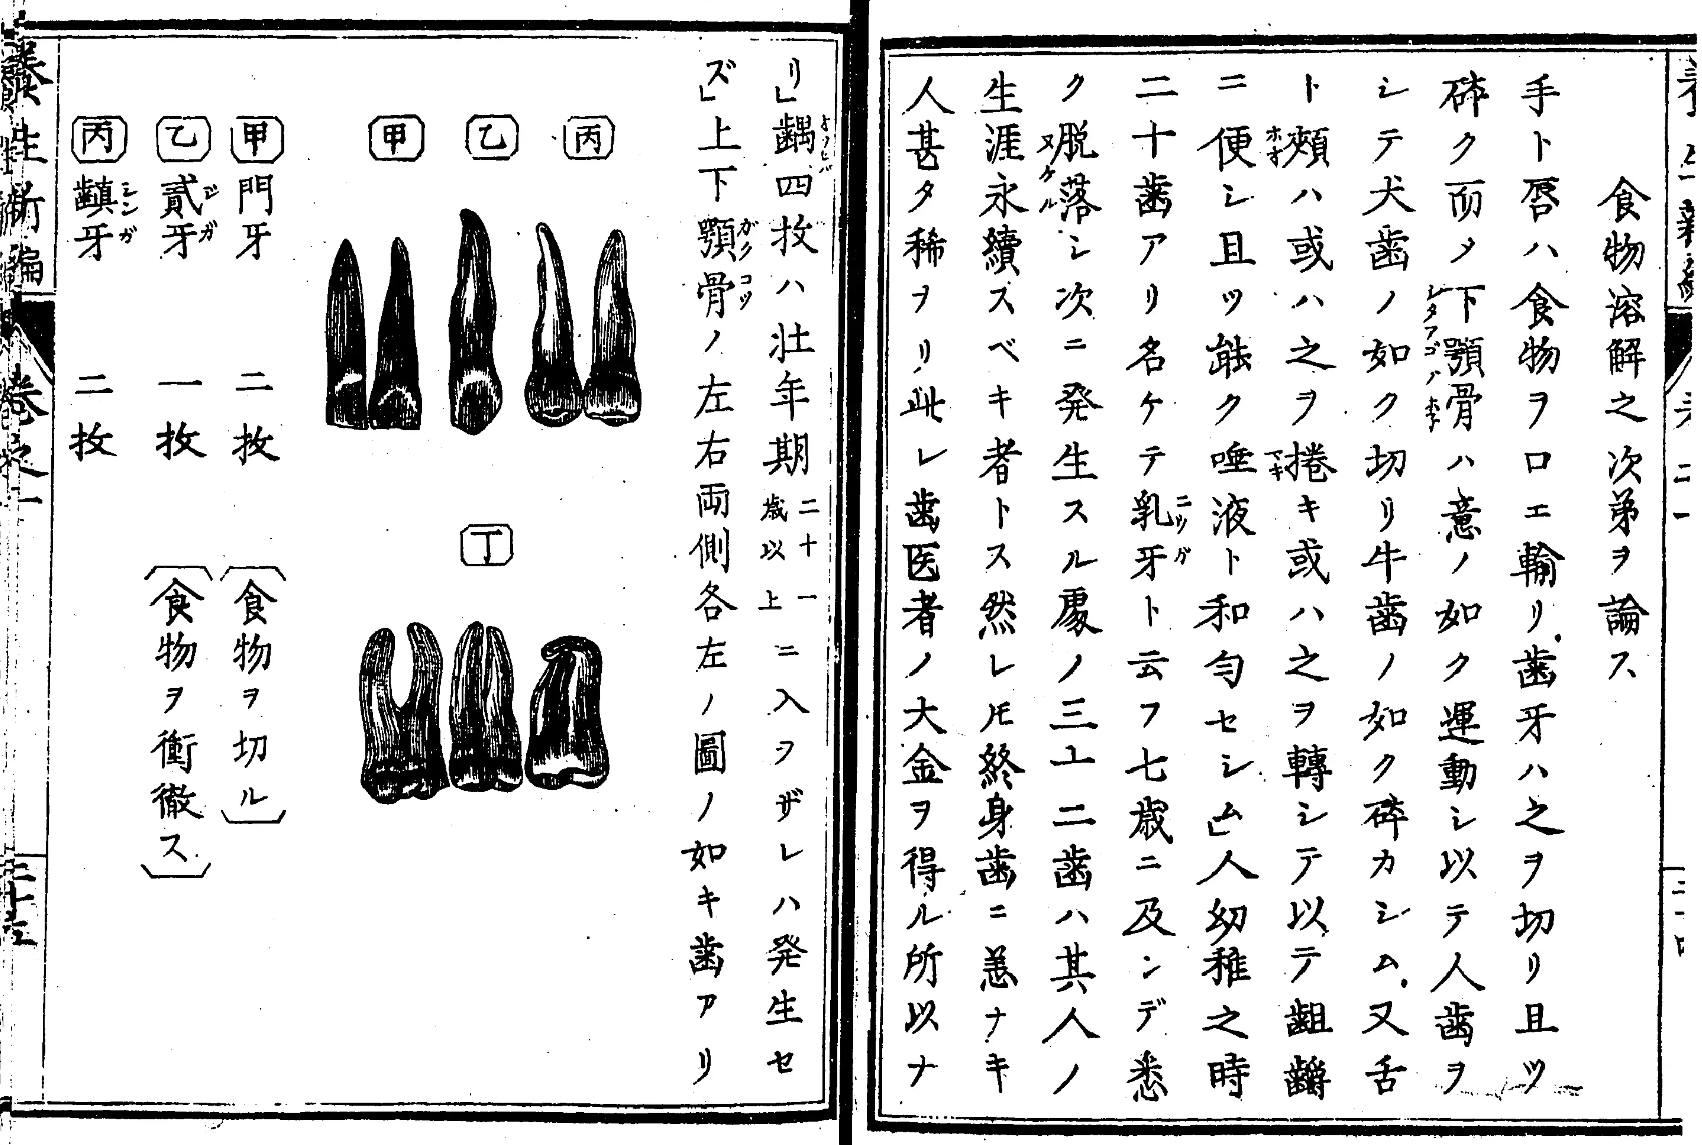 食物溶解之次第ヲ論ス
手ト唇ハ食物ヲ口エ輸リ歯牙ハ之ヲ切リ且ツ
碎ク而メ下顎骨ハ意ノ如ク運動シ以テ人歯ヲ
シテ犬歯ノ如ク切リ牛歯ノ如ク碎カシム又舌
ト頰ハ或ハ之ヲ捲キ或ハ之ヲ轉シテ以テ齟嚼
ニ便シ且ツ能ク唾液ト和匀セシム」人幼稚之時
二十歯アリ名ケテ乳牙ト云フ七歳ニ及ンデ悉
ク脱落シ次ニ発生スル處ノ三十二歯ハ其人ノ
生涯永續スベキ者トス然レ𪜈終身歯ニ恙ナキ
人甚タ稀ヲリ此レ歯医者ノ大金ヲ得ル所以ナ
リ」齲四枚ハ壮年期二十一歳以上ニ入ヲザレハ発生セ
ズ」上下顎骨ノ左右両側各左ノ圖ノ如キ歯アリ
丙
乙
甲
丁
甲 門牙 二枚 食物ヲ切ル
乙 貳牙 一枚 食物ヲ衝徹ス
丙 齻牙 二枚
養生新編 巻之一
二十五